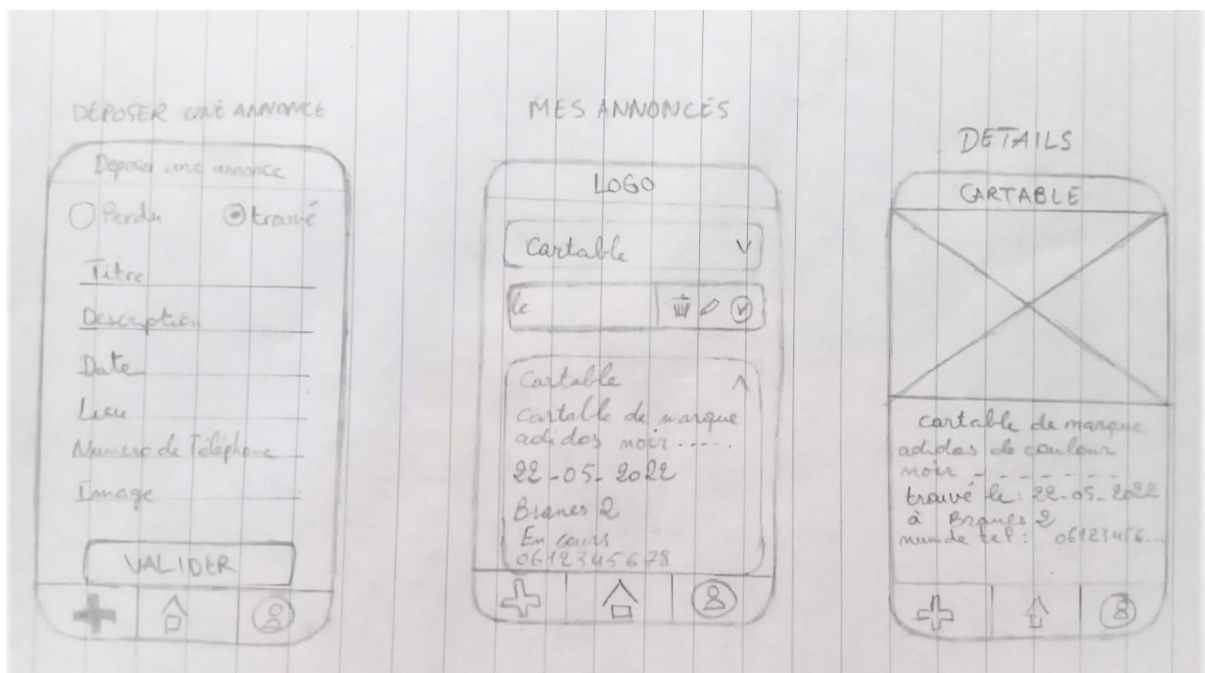 DÉPOSER UNE ANNONCE
Deposer une annonce
Perdu trouvé
Titre
Description
Date
Lieu
Numero de Téléphone
Image
VALIDER
MES ANNONCES
LOGO
Cartable
le
Cartable
Cartable de marque
adidas noir .....
22-05-2022
Branes 2
En cours
0612345678
DETAILS
CARTABLE
cartable de marque
adidas de couleur
noir - - - - - - -
trouvé le: 22-05-2022
à Branes 2
num de tel: 06123456...